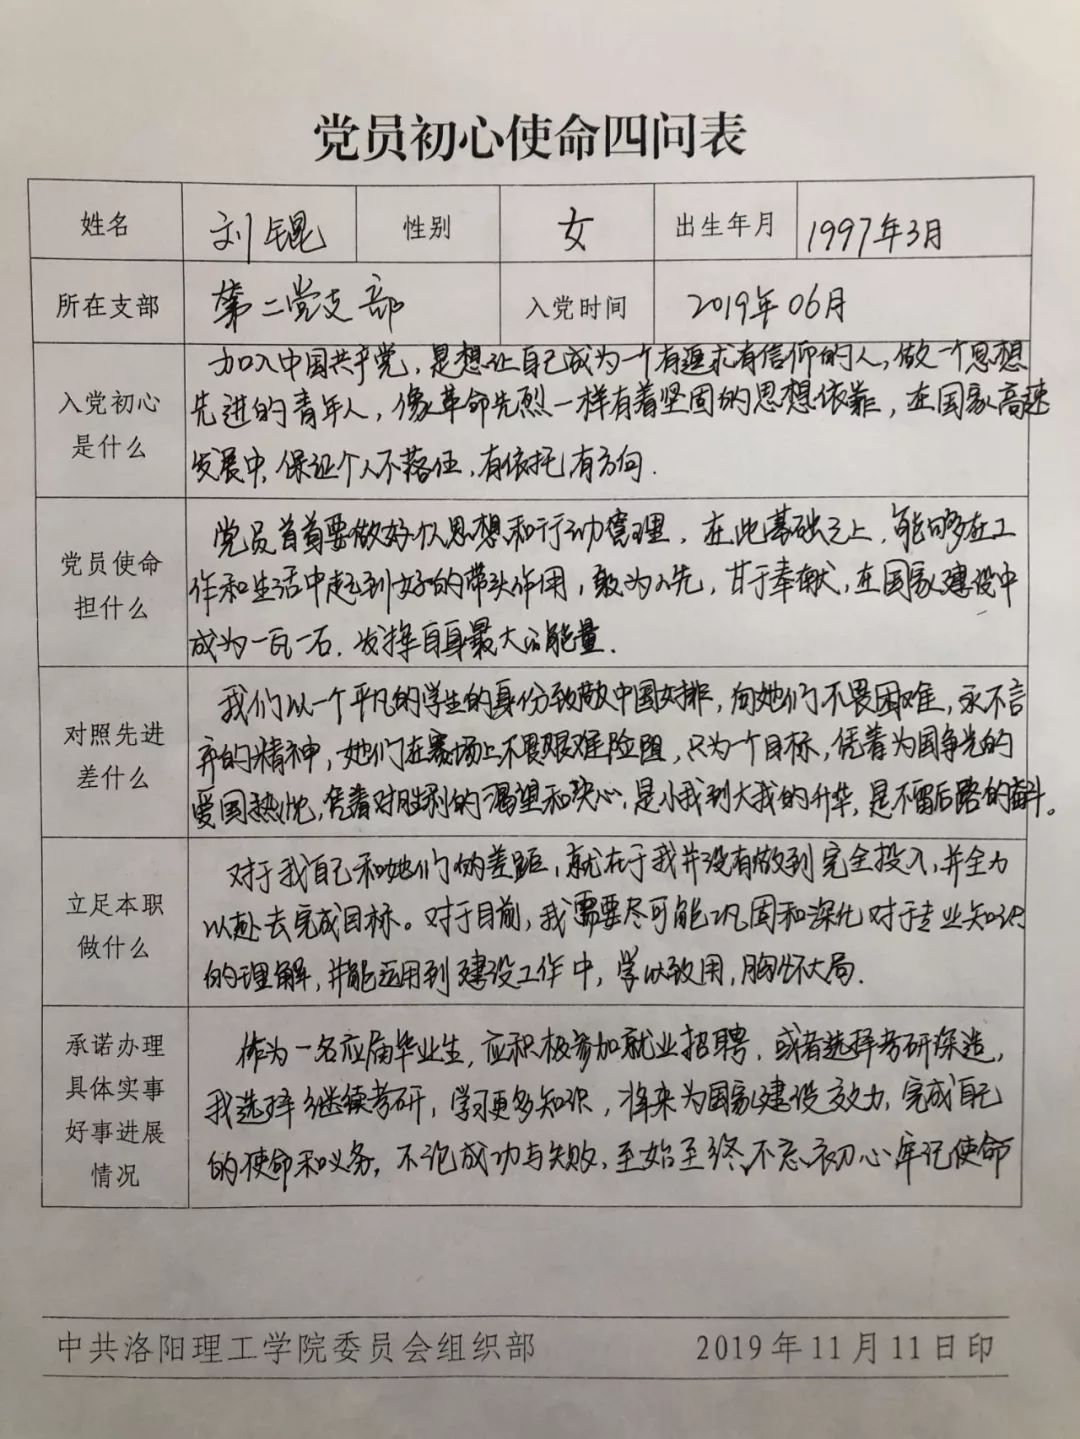 党员初心使命四问表
姓名 刘锟 性别 女 出生年月 1997年3月
所在支部 第二党支部 入党时间 2019年06月
入党初心
是什么
加入中国共产党，是想让自己成为一个有追求有信仰的人，做一个思想
先进的青年人，像革命先烈一样有着坚固的思想依靠，在国家高速
发展中，保证个人不落伍，有依托有方向.
党员使命
担什么
党员首首要做好个人思想和行动管理，在此基础之上，能够在工
作和生活中起到好的带头作用，敢为人先，甘于奉献，在国家建设中
成为一瓦一石，发挥自身最大的能量.
对照先进
差什么
我们以一个平凡的学生的身份致敬中国女排，向她们不畏困难，永不言
弃的精神，她们在赛场上不畏艰难险阻，只为一个目标，凭着为国争光的
爱国热忱，凭着对胜利的渴望和决心，是小我到大我的升华，是不留后路的奋斗。
立足本职
做什么
对于我自己和她们的差距，就在于我并没有做到完全投入，并全力
以赴去完成目标。对于目前，我需要尽可能巩固和深化对于专业知识
的理解，并能运用到建设工作中，学以致用，胸怀大局.
承诺办理
具体实事
好事进展
情况
作为一名应届毕业生，应积极参加就业招聘，或者选择考研深造，
我选择继续考研，学习更多知识，将来为国家建设效力，完成自己
的使命和义务，不论成功与失败，至始至终，不忘初心牢记使命
中共洛阳理工学院委员会组织部 2019年11月11日印